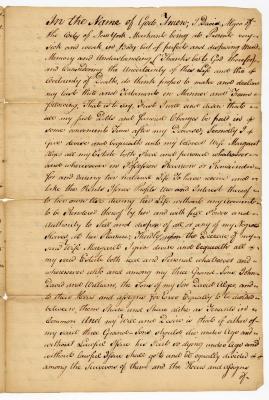 In the Name of God Amen, I David Algeo of
the City of New York Merchant being at Present very
Sick and weak in Body but of perfect and disposing Mind
Memory and Understanding (Thanks be to God therefor)
and Considering the Uncertainty of this Life and the
Certainty of Death, do think proper to make and declare
my last Will and Testament in Manner and Form
following, That is to say, First I will and order that
all my just Debts and Funeral Charges be paid in
some convenient Time after my Decease, Secondly I
give devise and bequeath unto my beloved Wife Margaret
all my Estate both real and personal whatsoever
and wheresoever in Possession Reversion or Remainder
for and during her natural Life To have receive and
take the Rents Issues Profits Use and Interest thereof
to her own Use during her Life without any Account
to be rendered thereof by her and with full Power and
Authority to Sell and dispose of all or any of my Negroe
Slaves at her Pleasure, Thirdly, upon the Decease of my
said Wife Margaret I give devise and bequeath all
my said Estate both real and Personal whatsoever and
wheresoever unto and among my three Grand Sons John
David and William, the Sons of my Son David Algeo, and
to their Heirs and assigns for Ever Equally to be divided
between them Share and Share alike as Tenants in
Common And my Will and Desire is that if either of
my said three Grand Sons should die under Age and
without Lawful Issue his Part so dying under Age and
without lawful Issue shall go to and be equally divided
among the Survivors of them and the Heirs and assigns
of